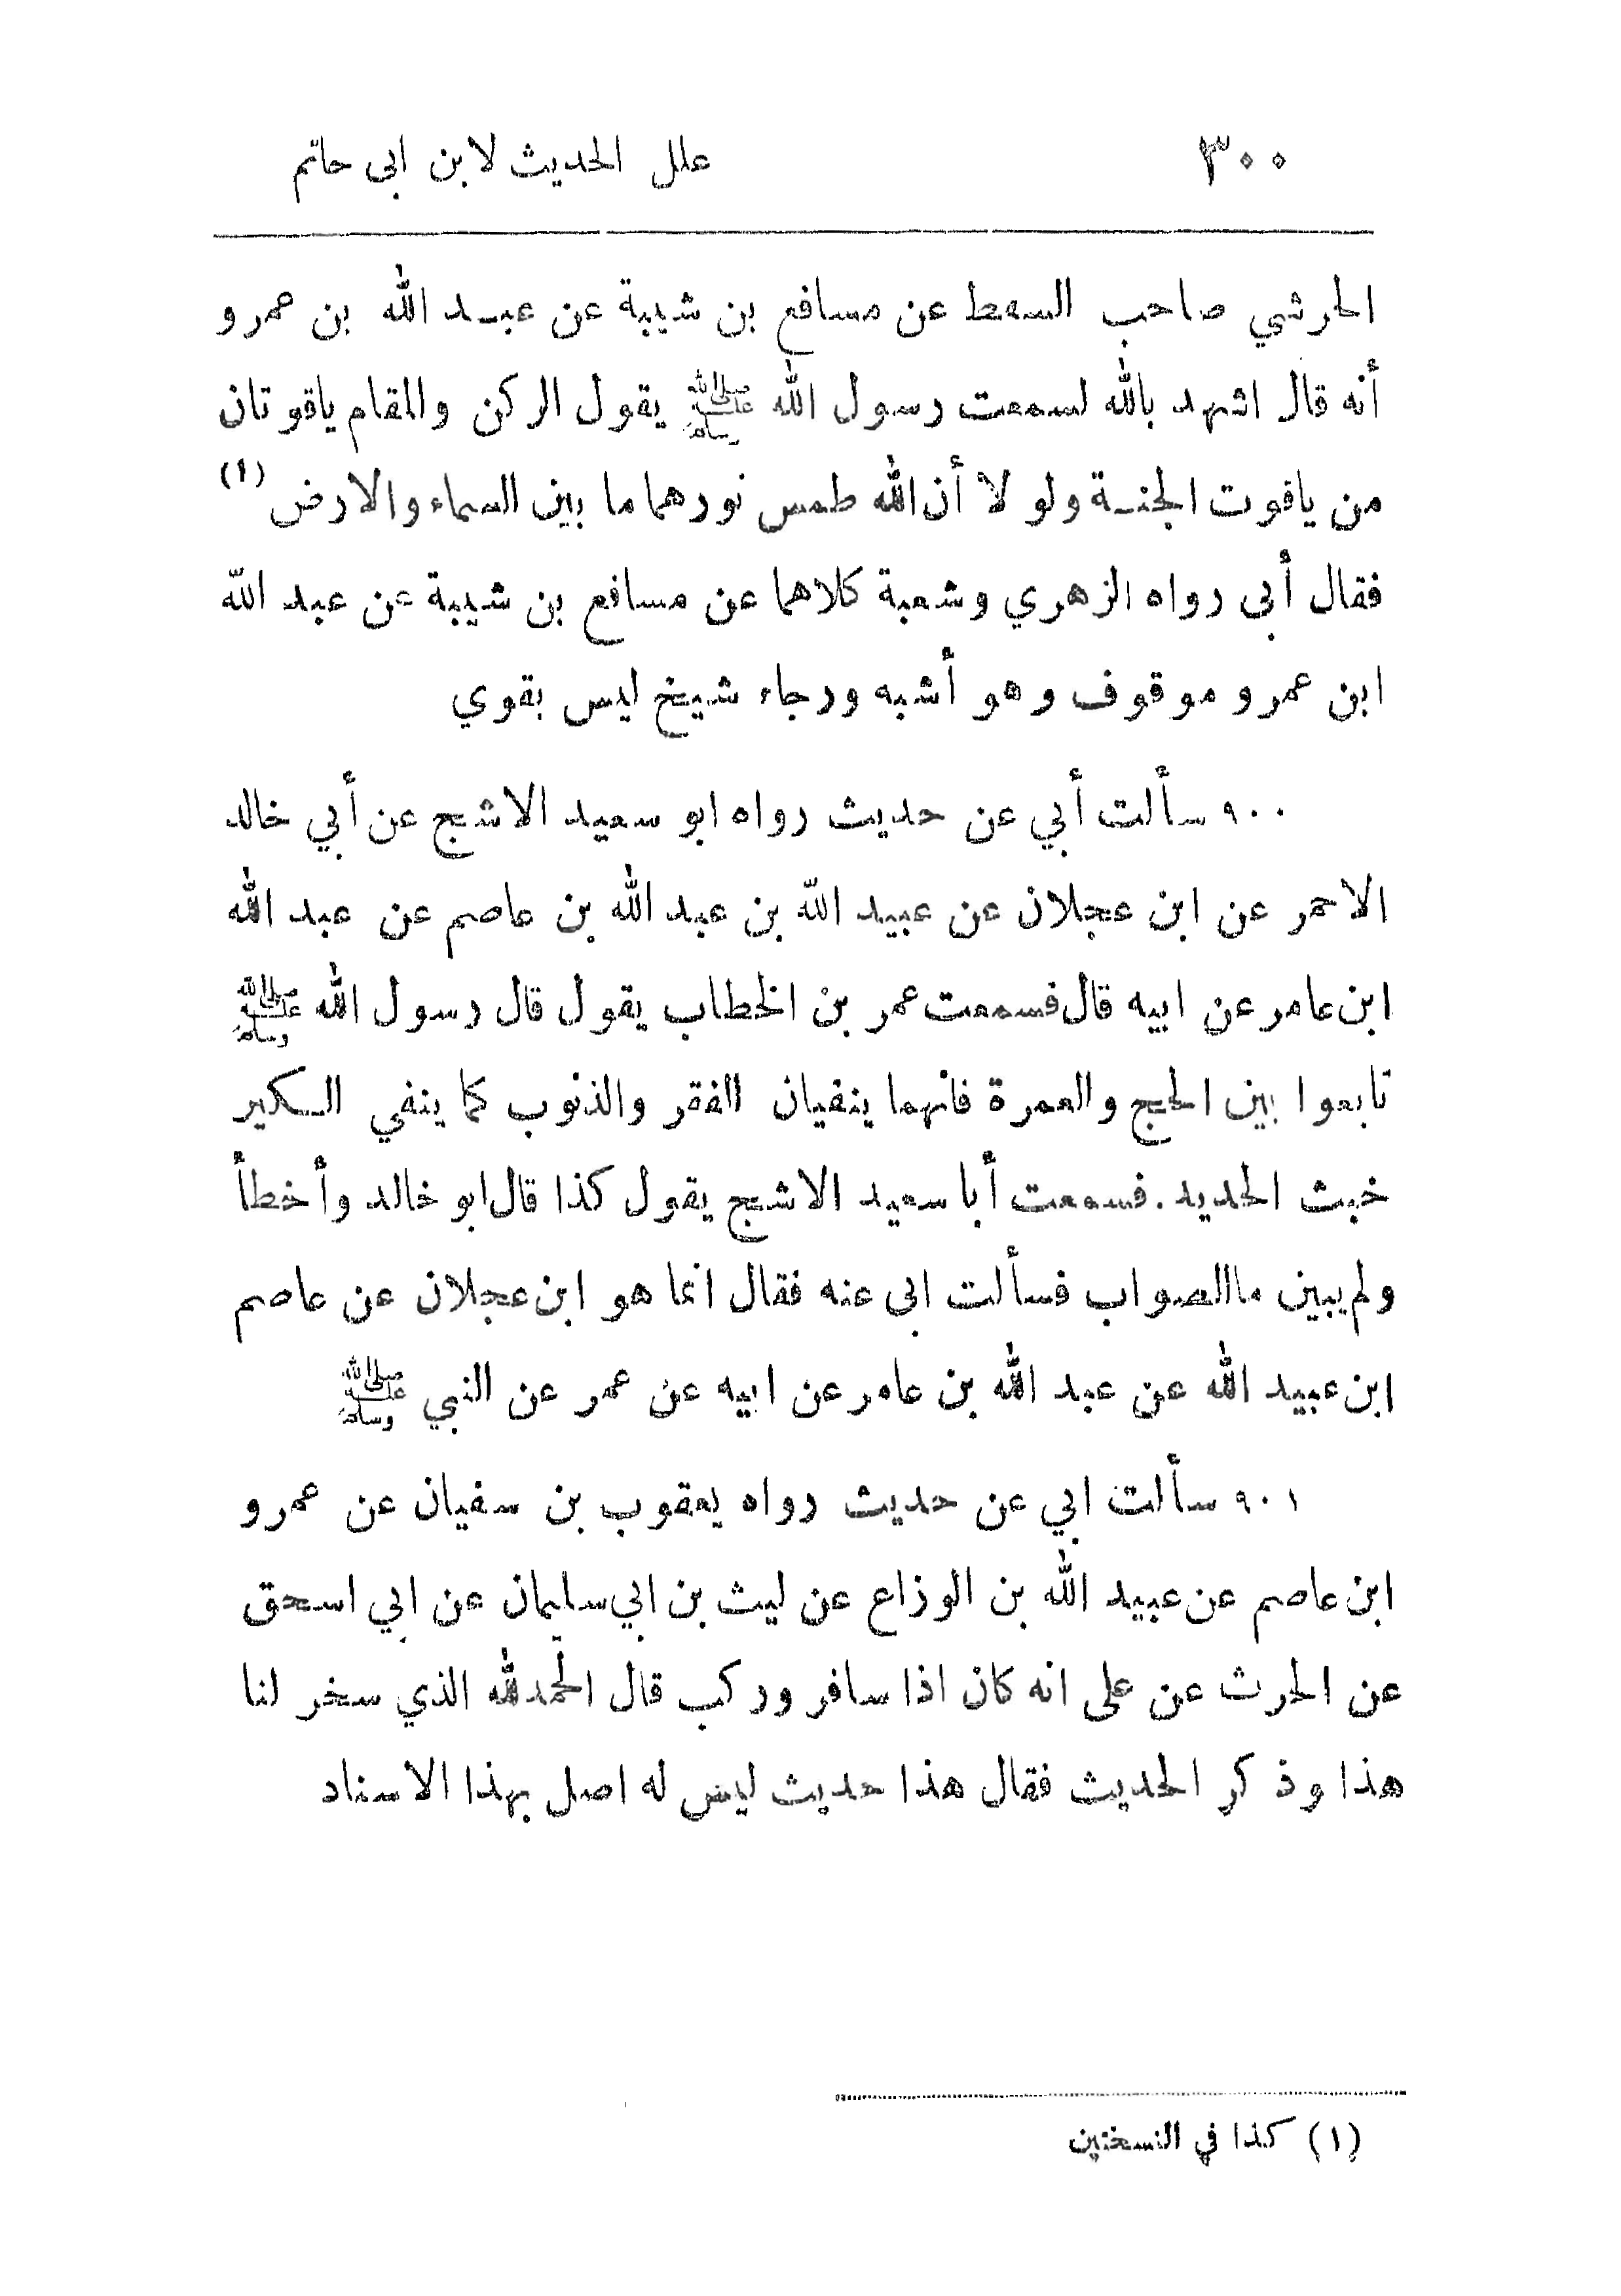 ٣٠٠ علل الحديث لابن ابى حاتم
الحرشي صاحب السقط عن مسافع بن شيبة عن عبد الله بن عمرو
أنه قال اشهد بالله لسمعت رسول الله ﷺ يقول الركن والمقام ياقوتان
من ياقوت الجنة ولو لا أن الله طمس نورهما ما بين السماء والارض (١)
فقال أبى رواه الزهري وشعبة كلاهما عن مسافع بن شيبة عن عبد الله
ابن عمرو موقوف وهو أشبه ورجاء شيخ ليس بقوي
٩٠٠ سألت أبي عن حديث رواه ابو سعيد الاشج عن أبي خالد
الاحمر عن ابن عجلان عن عبيد الله بن عبد الله بن عاصم عن عبد الله
ابن عامر عن ابيه قال فسمعت عمر بن الخطاب يقول قال رسول الله ﷺ
تابعوا بين الحج والعمرة فانهما ينفيان الفقر والذنوب كما ينفي الكير
خبث الحديد . فسمعت أبا سعيد الاشج يقول كذا قال ابو خالد وأخطأ
ولم يبين ما الصواب فسألت ابى عنه فقال انما هو ابن عجلان عن عاصم
ابن عبيد الله عن عبد الله بن عامر عن ابيه عن عمر عن النبي ﷺ
٩٠١ سألت ابي عن حديث رواه يعقوب بن سفيان عن عمرو
ابن عاصم عن عبيد الله بن الوزاع عن ليث بن ابي سليمان عن ابي اسحق
عن الحرث عن على انه كان اذا سافر وركب قال الحمد لله الذي سخر لنا
هذا وذكر الحديث فقال هذا حديث ليس له اصل بهذا الاسناد
(١) كذا في النسختين